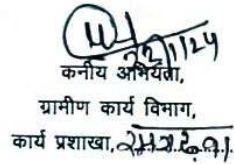 22/1/24
कनीय अभियंता,
ग्रामीण कार्य विभाग,
कार्य प्रशाखा,